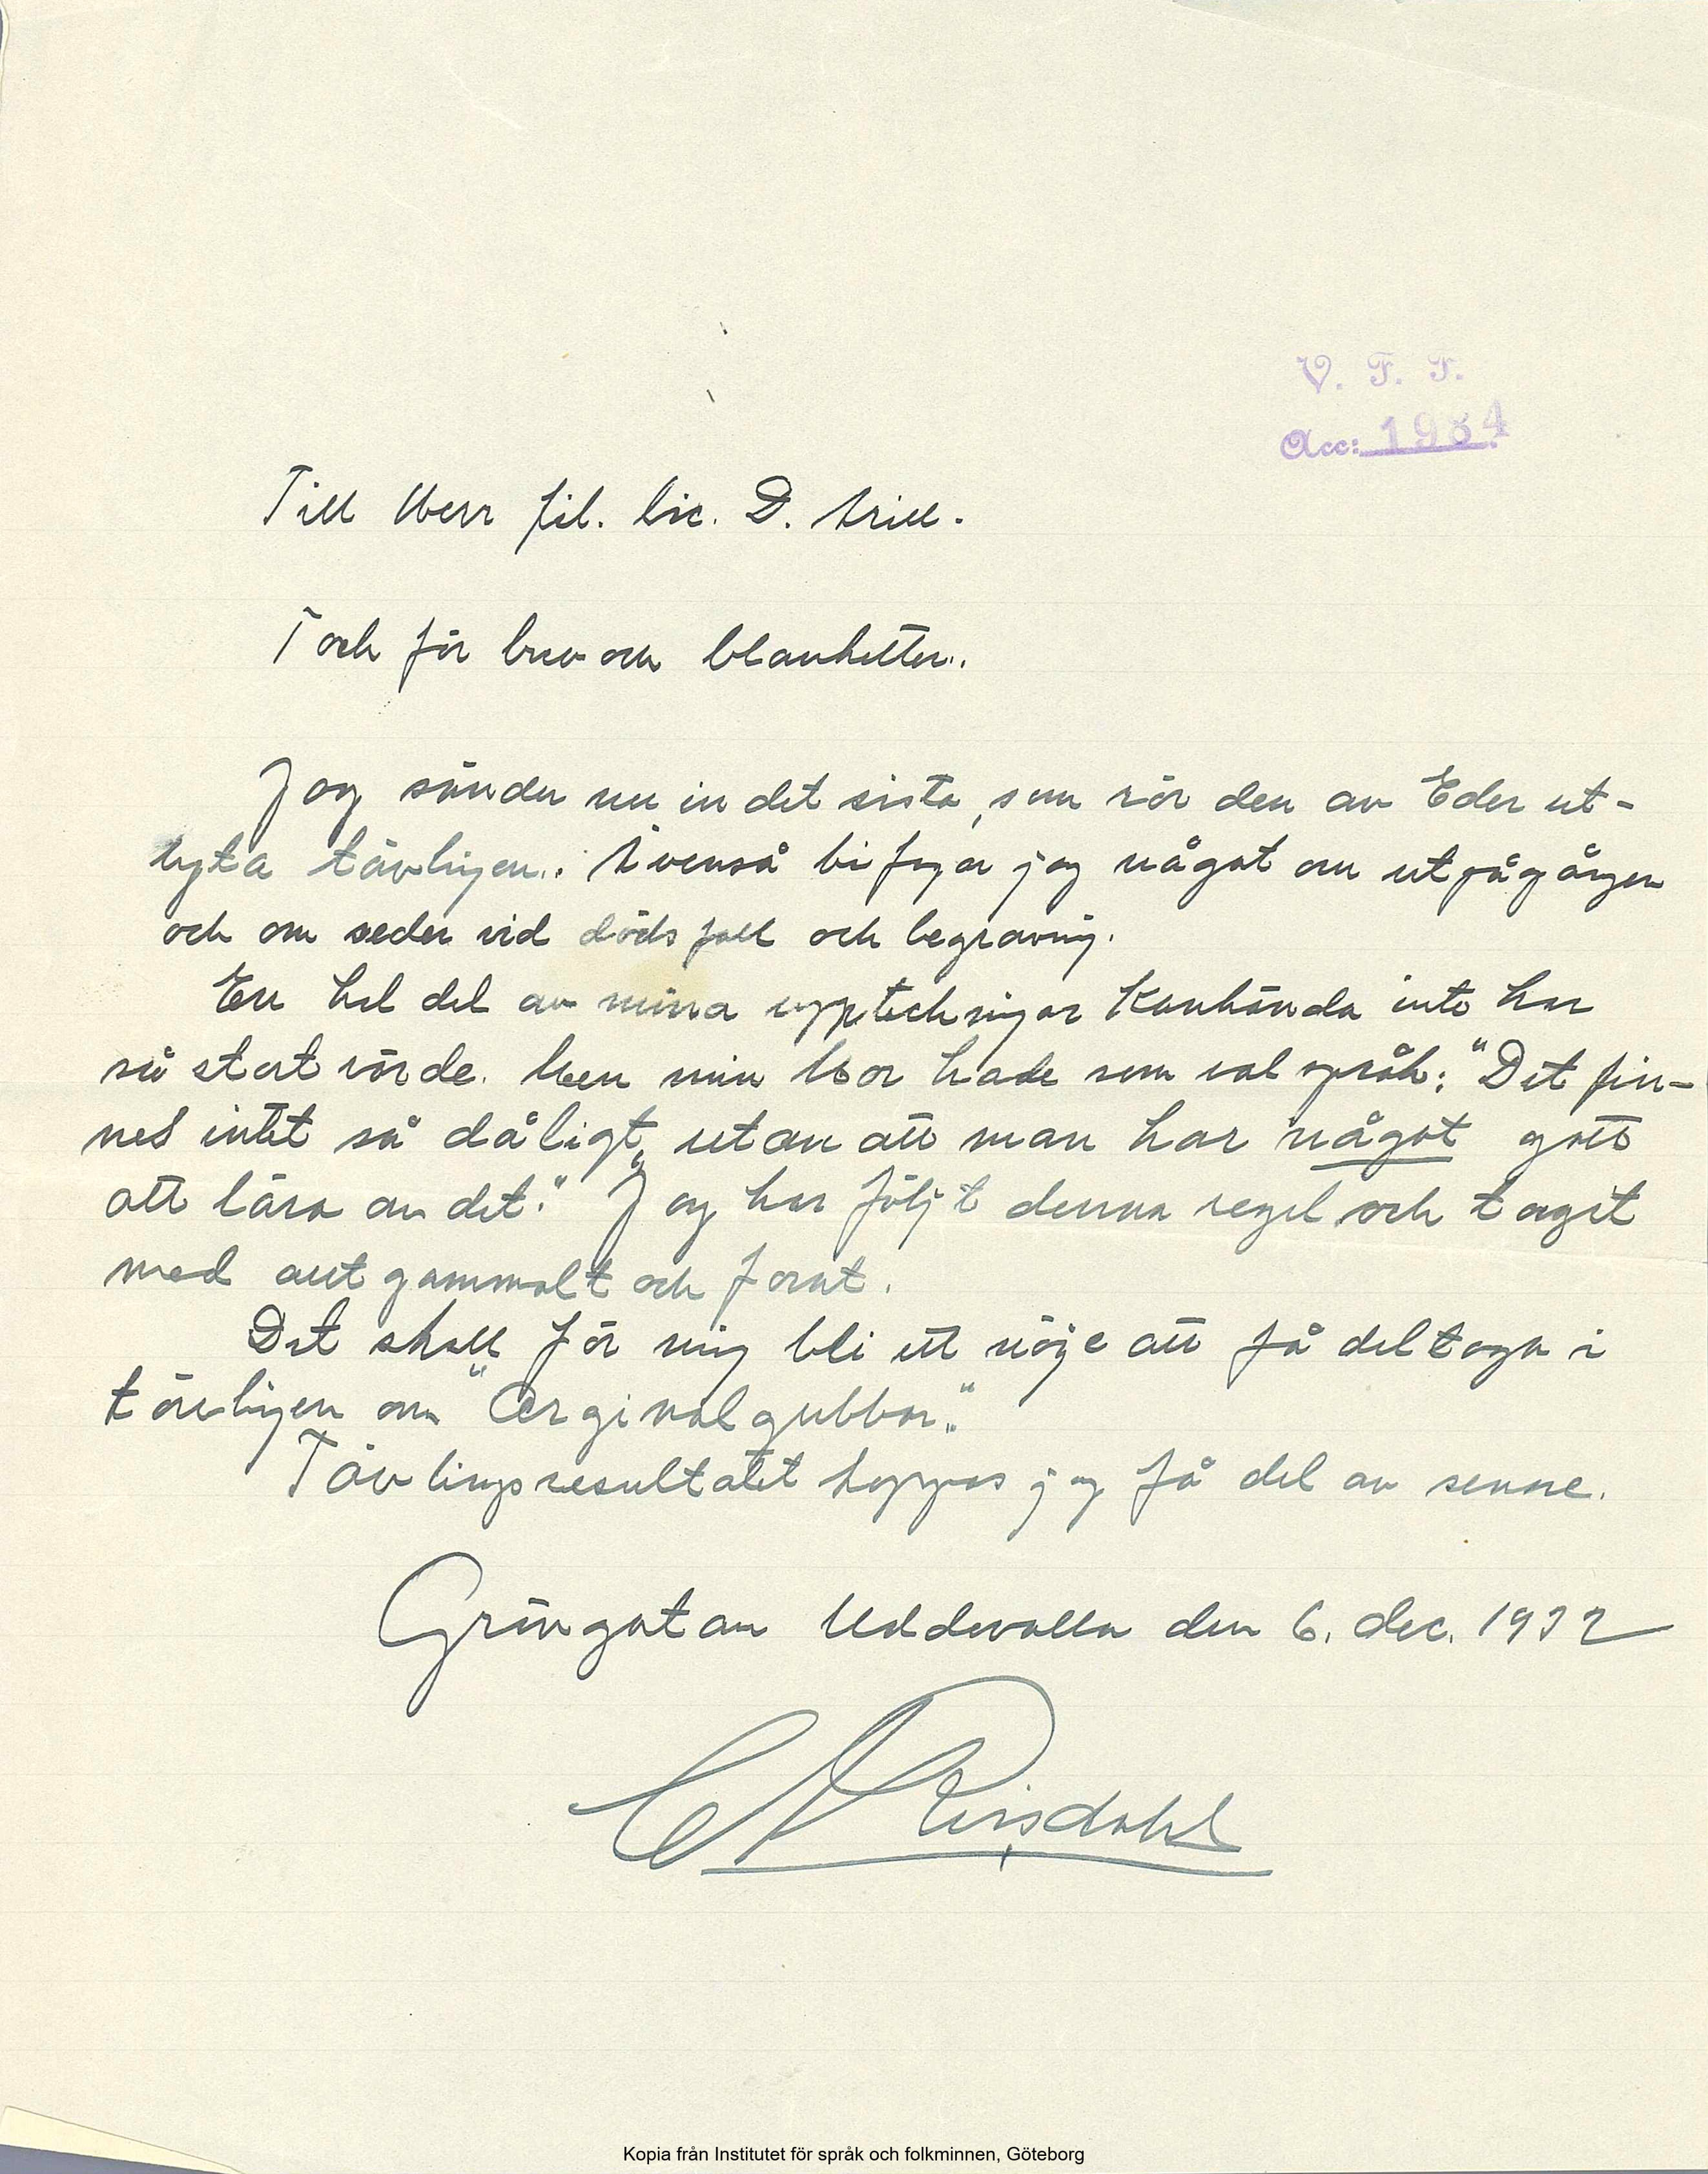 V. F. F.
Acc: 1934
Till Herr fil. lic. D. Arill.
Tack för brev och blanketter.
Jag sänder nu in det sista, som rör den av Eder ut-
lysta tävlingen. Ävenså bifogar jag något om
och om seder vid dödsfall och begravning.
En hel del av mina uppteckningar kanhända inte har
så stort värde. Men min Mor hade som valspråk: "Det fin-
nes intet så dåligt, utan att man har något gott
att lära av det." Jag har följt denna regel och tagit
med allt gammalt och fornt.
Det skall för mig bli ett nöje att få deltaga i
tävlingen om "Orginalgubbar."
Tävlingsresultatet hoppas jag få del av senare.
Uddevalla den 6. dec. 1932
Kopia från Institutet för språk och folkminnen, Göteborg